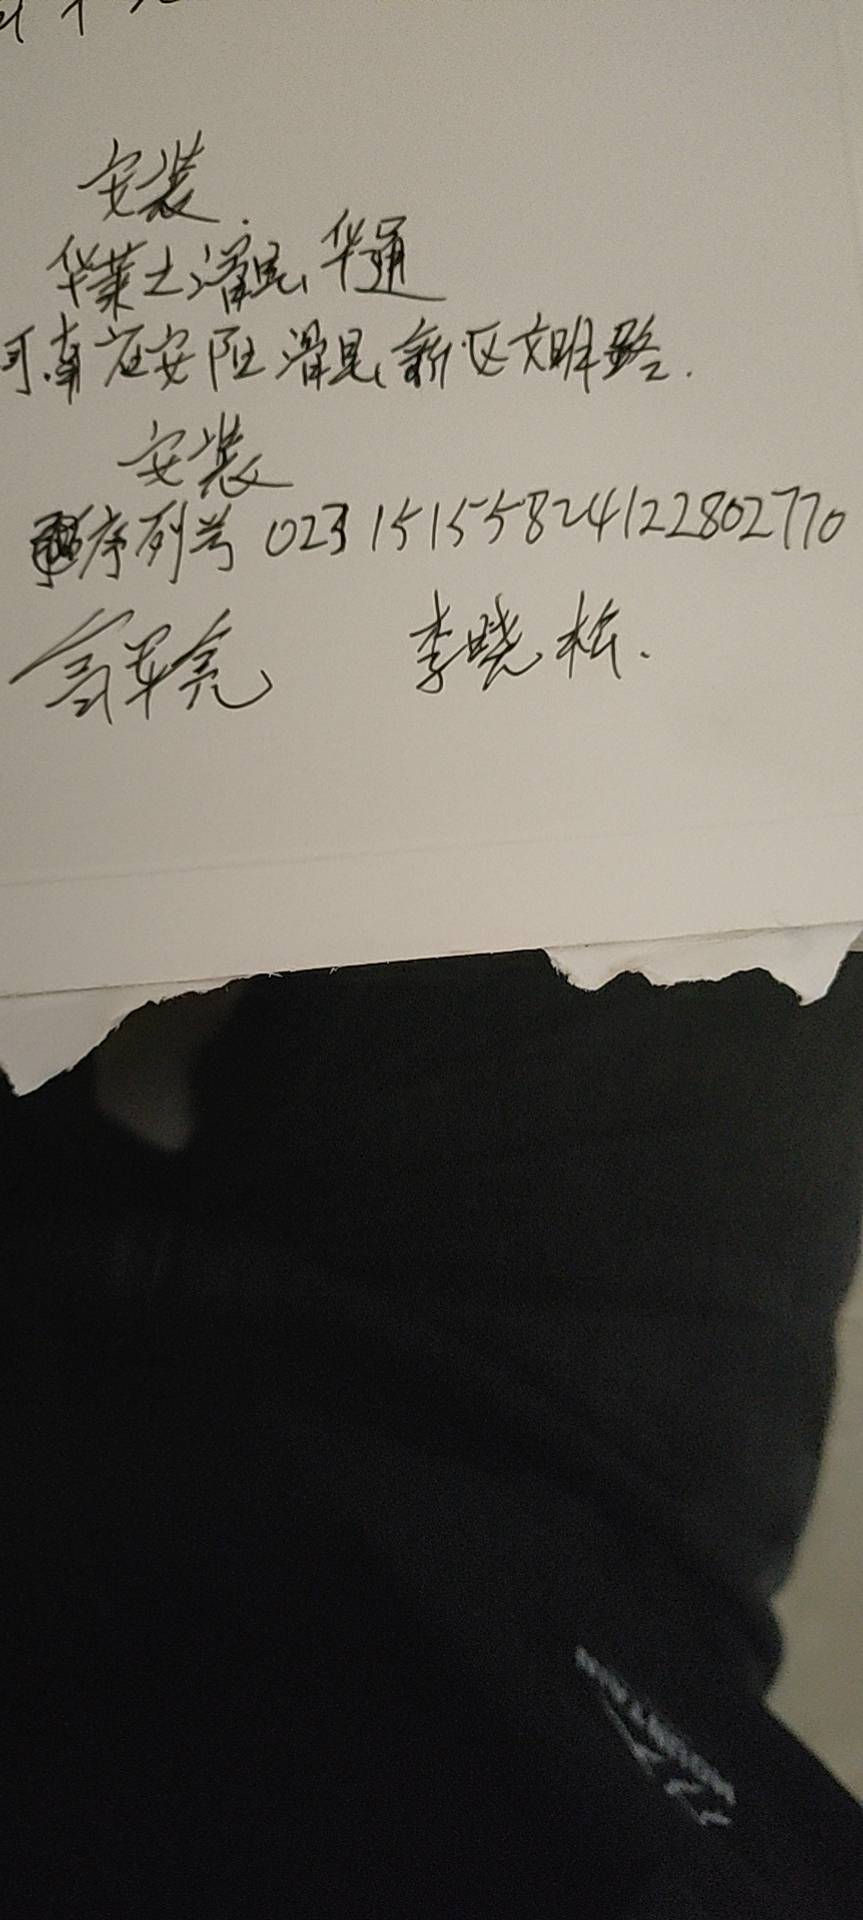 安装.
华莱士滑县华通
河南省安阳滑县新区文明路.
安装
序列号 02315155824122802770
李晓松.